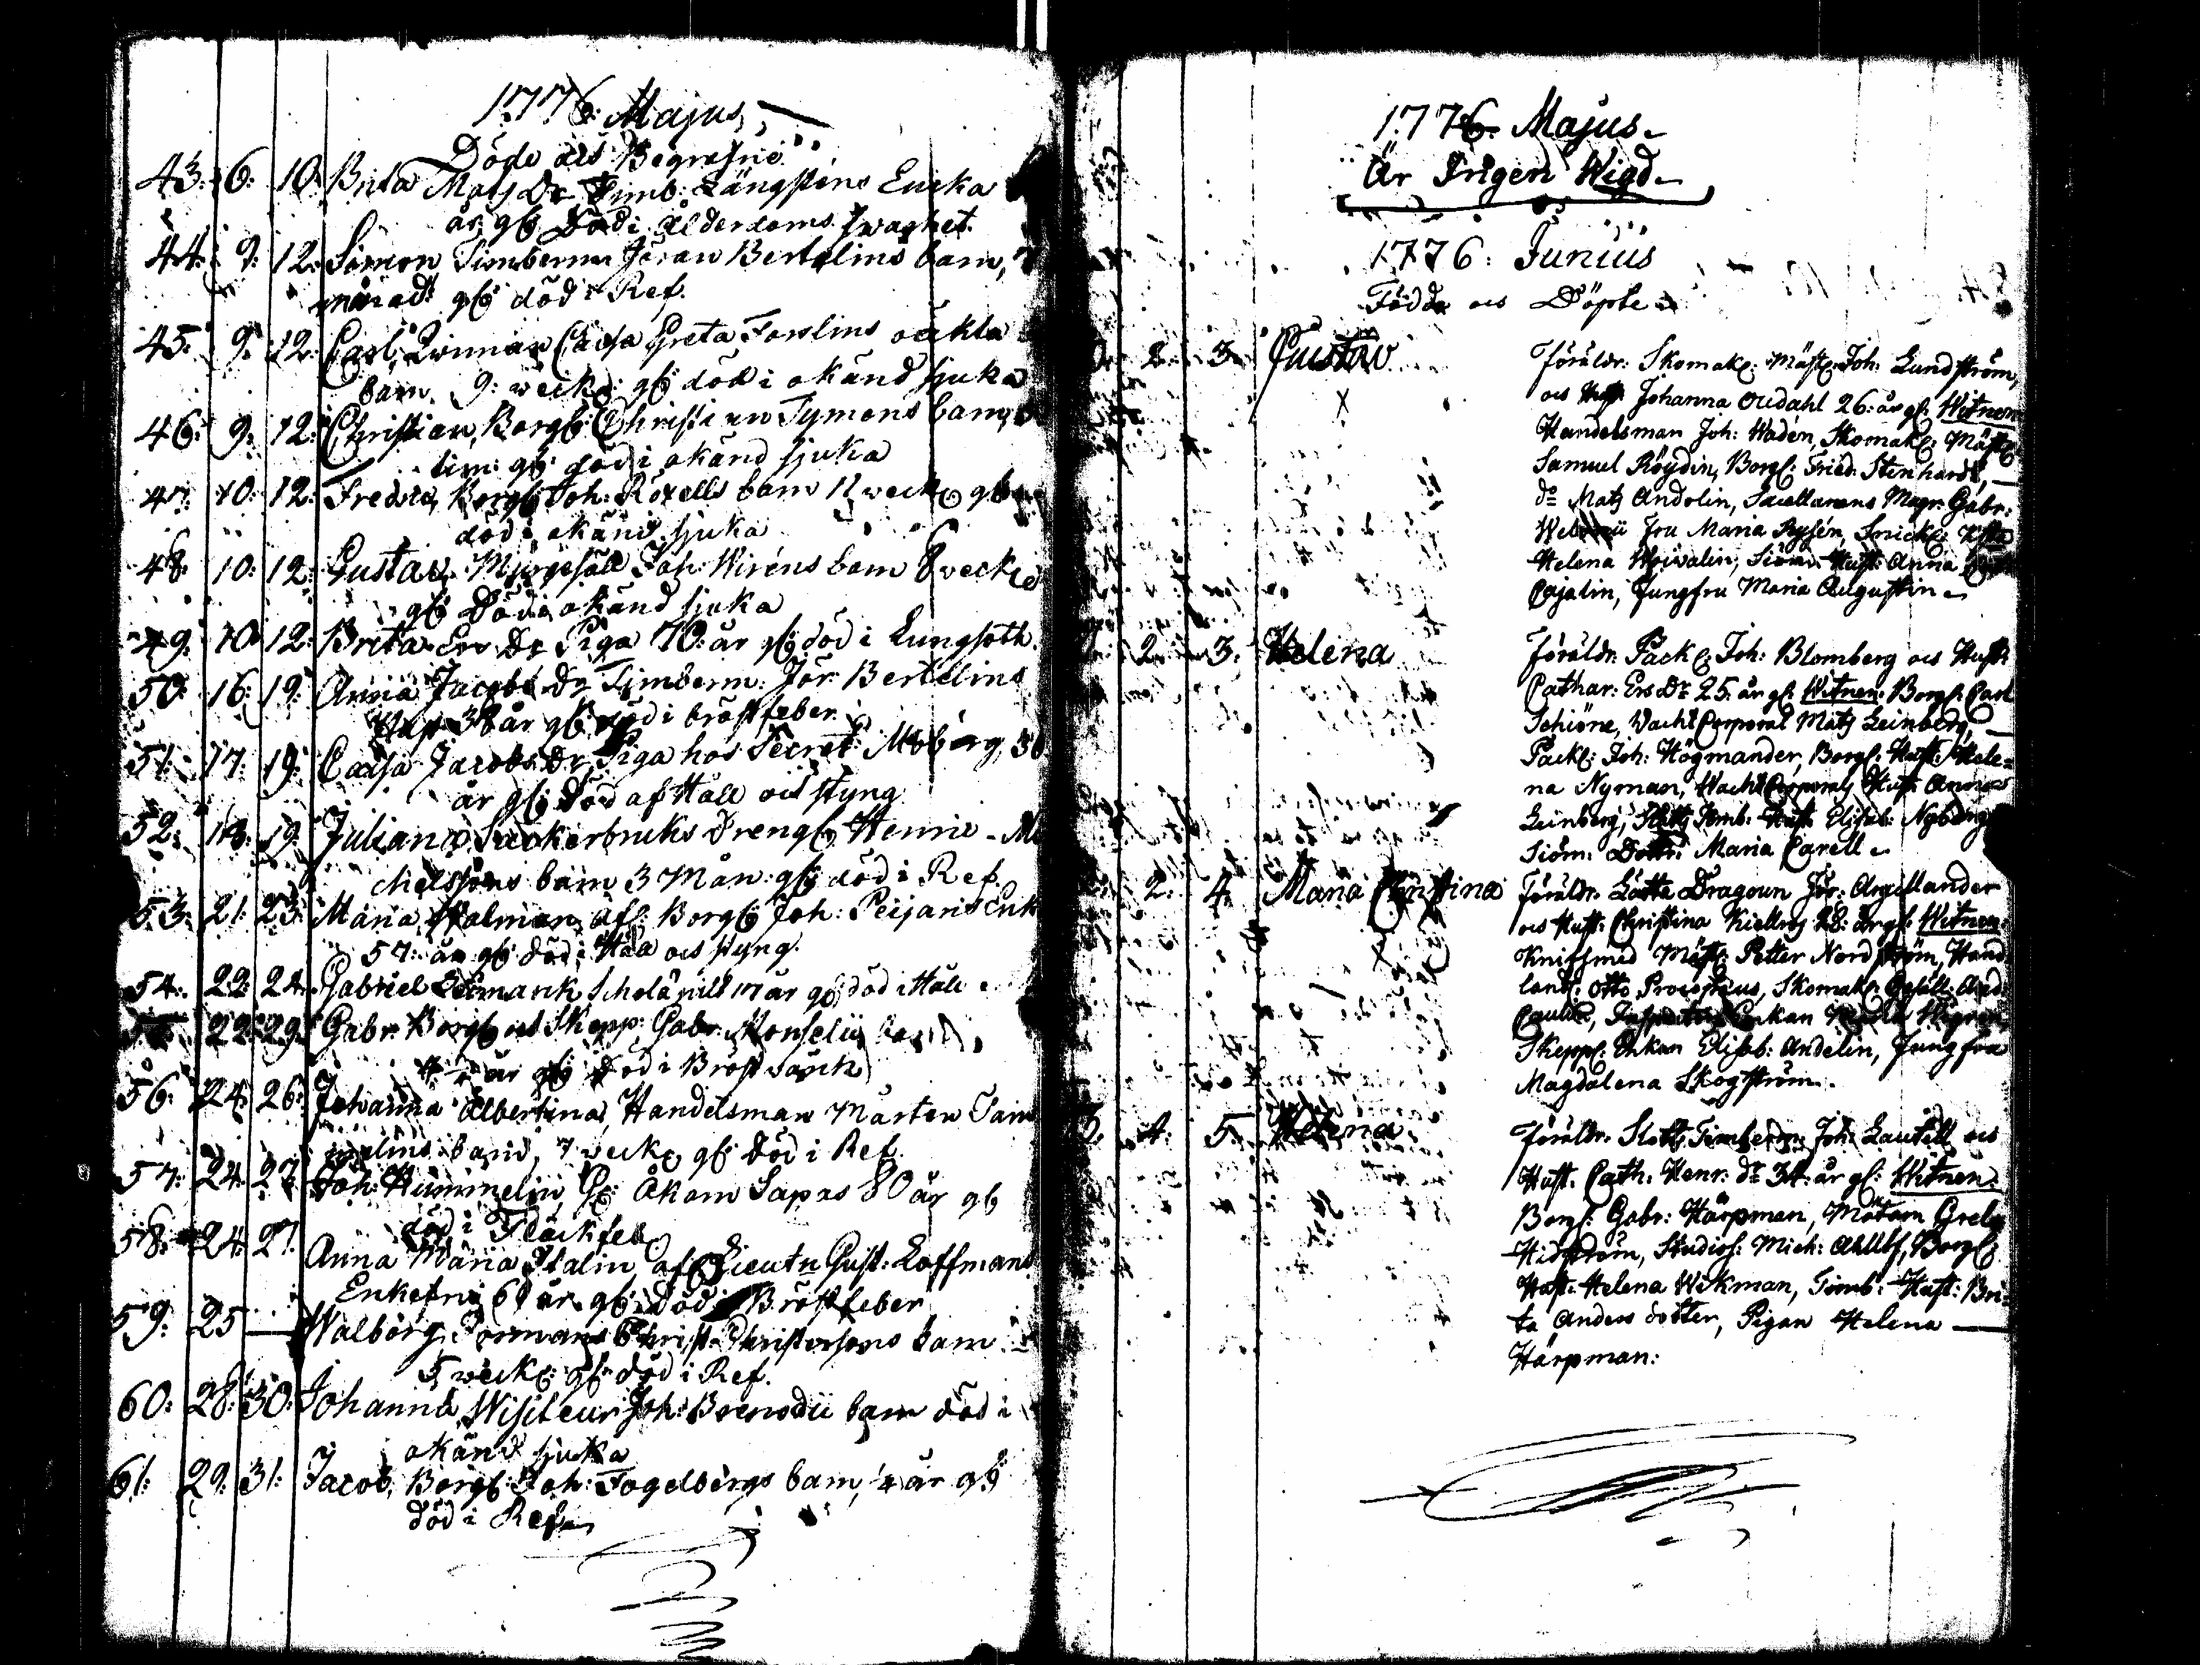 1776. Majus
Döde och Begrafne
43. 6. 10. Brita Mats Dr Timb: Längstens Enka
år gl. Död i ålderdoms swaghet.
44. 9. 12. Simon Timberm Jöran Bertelins barn, 7
månad: gl. död i Ref.
45. 9. 12. Carl, Caisa Greta Forslins oäkta
barn. 9: weck: gl: död i okänd sjuka
46. 9. 12. Christian, Borgl: Christian Tymons barn,
tim: gl: död i okänd sjuka
47. 10. 12. Fredric, Borgl: Joh: Roxells barn 12 weck: gl
död i okänd sjuka
48. 10. 12. Gustav Murgesäll Joh: Wiréns barn 8 weck:
gl: Död i okänd sjuka
49. 10. 12. Brita Ers Dr Piga 70: år gl: död i Lungsoth.
50. 16. 19. Anna Jacobs Dr Timberm: Jör Bertelins
Hust 38 år gl: död i bröstfeber.
51. 17. 19. Caisa Jacobs Dr Piga hos Secret: Moberg, 36
år gl: Död af Håll och styng
52. 18. 19. Juliana Sockerbruks Drengl: Henric Mi
chelssons barn 3 Mån: gl: död i Ref.
53. 21. 23. Maria Walman afl: Borgl: Joh: Peijaris Enk
57: år gl: död i Håll och styng.
54. 22. 24. Gabriel Schol: 17 år gl: död i Håll
55. 22. 29. Gabr. Borgl: och Skepp: Gabr: Monselii barn,
år gl: död i Bröstwärk
56. 24. 26. Johanna Albertina, Handelsman Mårten Tam
melins barn, 7 weck: gl: Död i Ref.
57. 24. 27. Joh: Hummelin, Åkom Sapas 80 år gl
död i Fläckfeb.
58. 24. 27. Anna Maria Stalin, afl: Lieutn Gust: Loffmans
Enkefru 69 år gl: död i Bröstfeber
59. 25 — Walborg, Formans Christ. Christersons barn
5 weck: gl: död i Ref.
60. 28. 30. Johanna, Wisiteur Joh: Boenodii barn död i
okänd sjuka
61. 29. 31. Jacob, Borgl: Joh: Fogelbergs barn, 4 år gl:
död i Ref.
1776. Majus.
Är Ingen Wigd.
1776. Junius
Födde och Döpte
2. 3. Gustav
Föräldr: Skomak: Mäst: Joh: Lundström,
och Hust: Johanna Oudahl 26: år gl: Witnen:
Handelsman Joh: Wadén, Skomak: Mäst:
Samuel Röydin, Borgl: Fried: Stenhardt,
do Matz Andolin, Sacellarens Magr: Gabr:
Fru Maria Rysén, Snick: Hust:
Helena Woivalin, Siöm: Hust: Anna
Cajalin, Jungfru Maria Augustin
2. 3. Helena
Föräldr: Pack: Joh: Blomberg och Hust:
Cathar: Ers Dr 25. år gl: Witnen: Borgl: Carl
Schiöne, Vacht Corporal Matz Leinberg,
Pack: Joh: Högmander, Borgl: Hust: Hele-
na Nyman, Vacht Corporals Hust: Anna
Leinberg, Slotts Timb: Hust: Elisab: Nyberg
Siöm: Dottr: Maria Carell
2. 4. Maria Christina
Föräldr: Lätta Dragoun Jör: Argillander
och Hust: Christina Kiellroj 28: år gl: Witnen:
Knifsmed Mäst: Petter Nordström, Hand
lands: Otto Procopaeus, Skomak: Gesäll: And:
Enkan
Skepp: Enkan Elisab: Andelin, Jungfru
Magdalena Skogström.
3. 4. 5. Helena
Föräldr: Slotts Timberm: Joh: Lautell och
Hust: Cath: Henr: Dr 34: år gl: Witnen:
Borgl: Gabr: Härpman,
Hidström, Studios: Mich: Ahllbs, Borgl:
Hust: Helena Wikman, Timb: Hust: Bri-
ta Anders dotter, Pigan Helena —
Härpman: